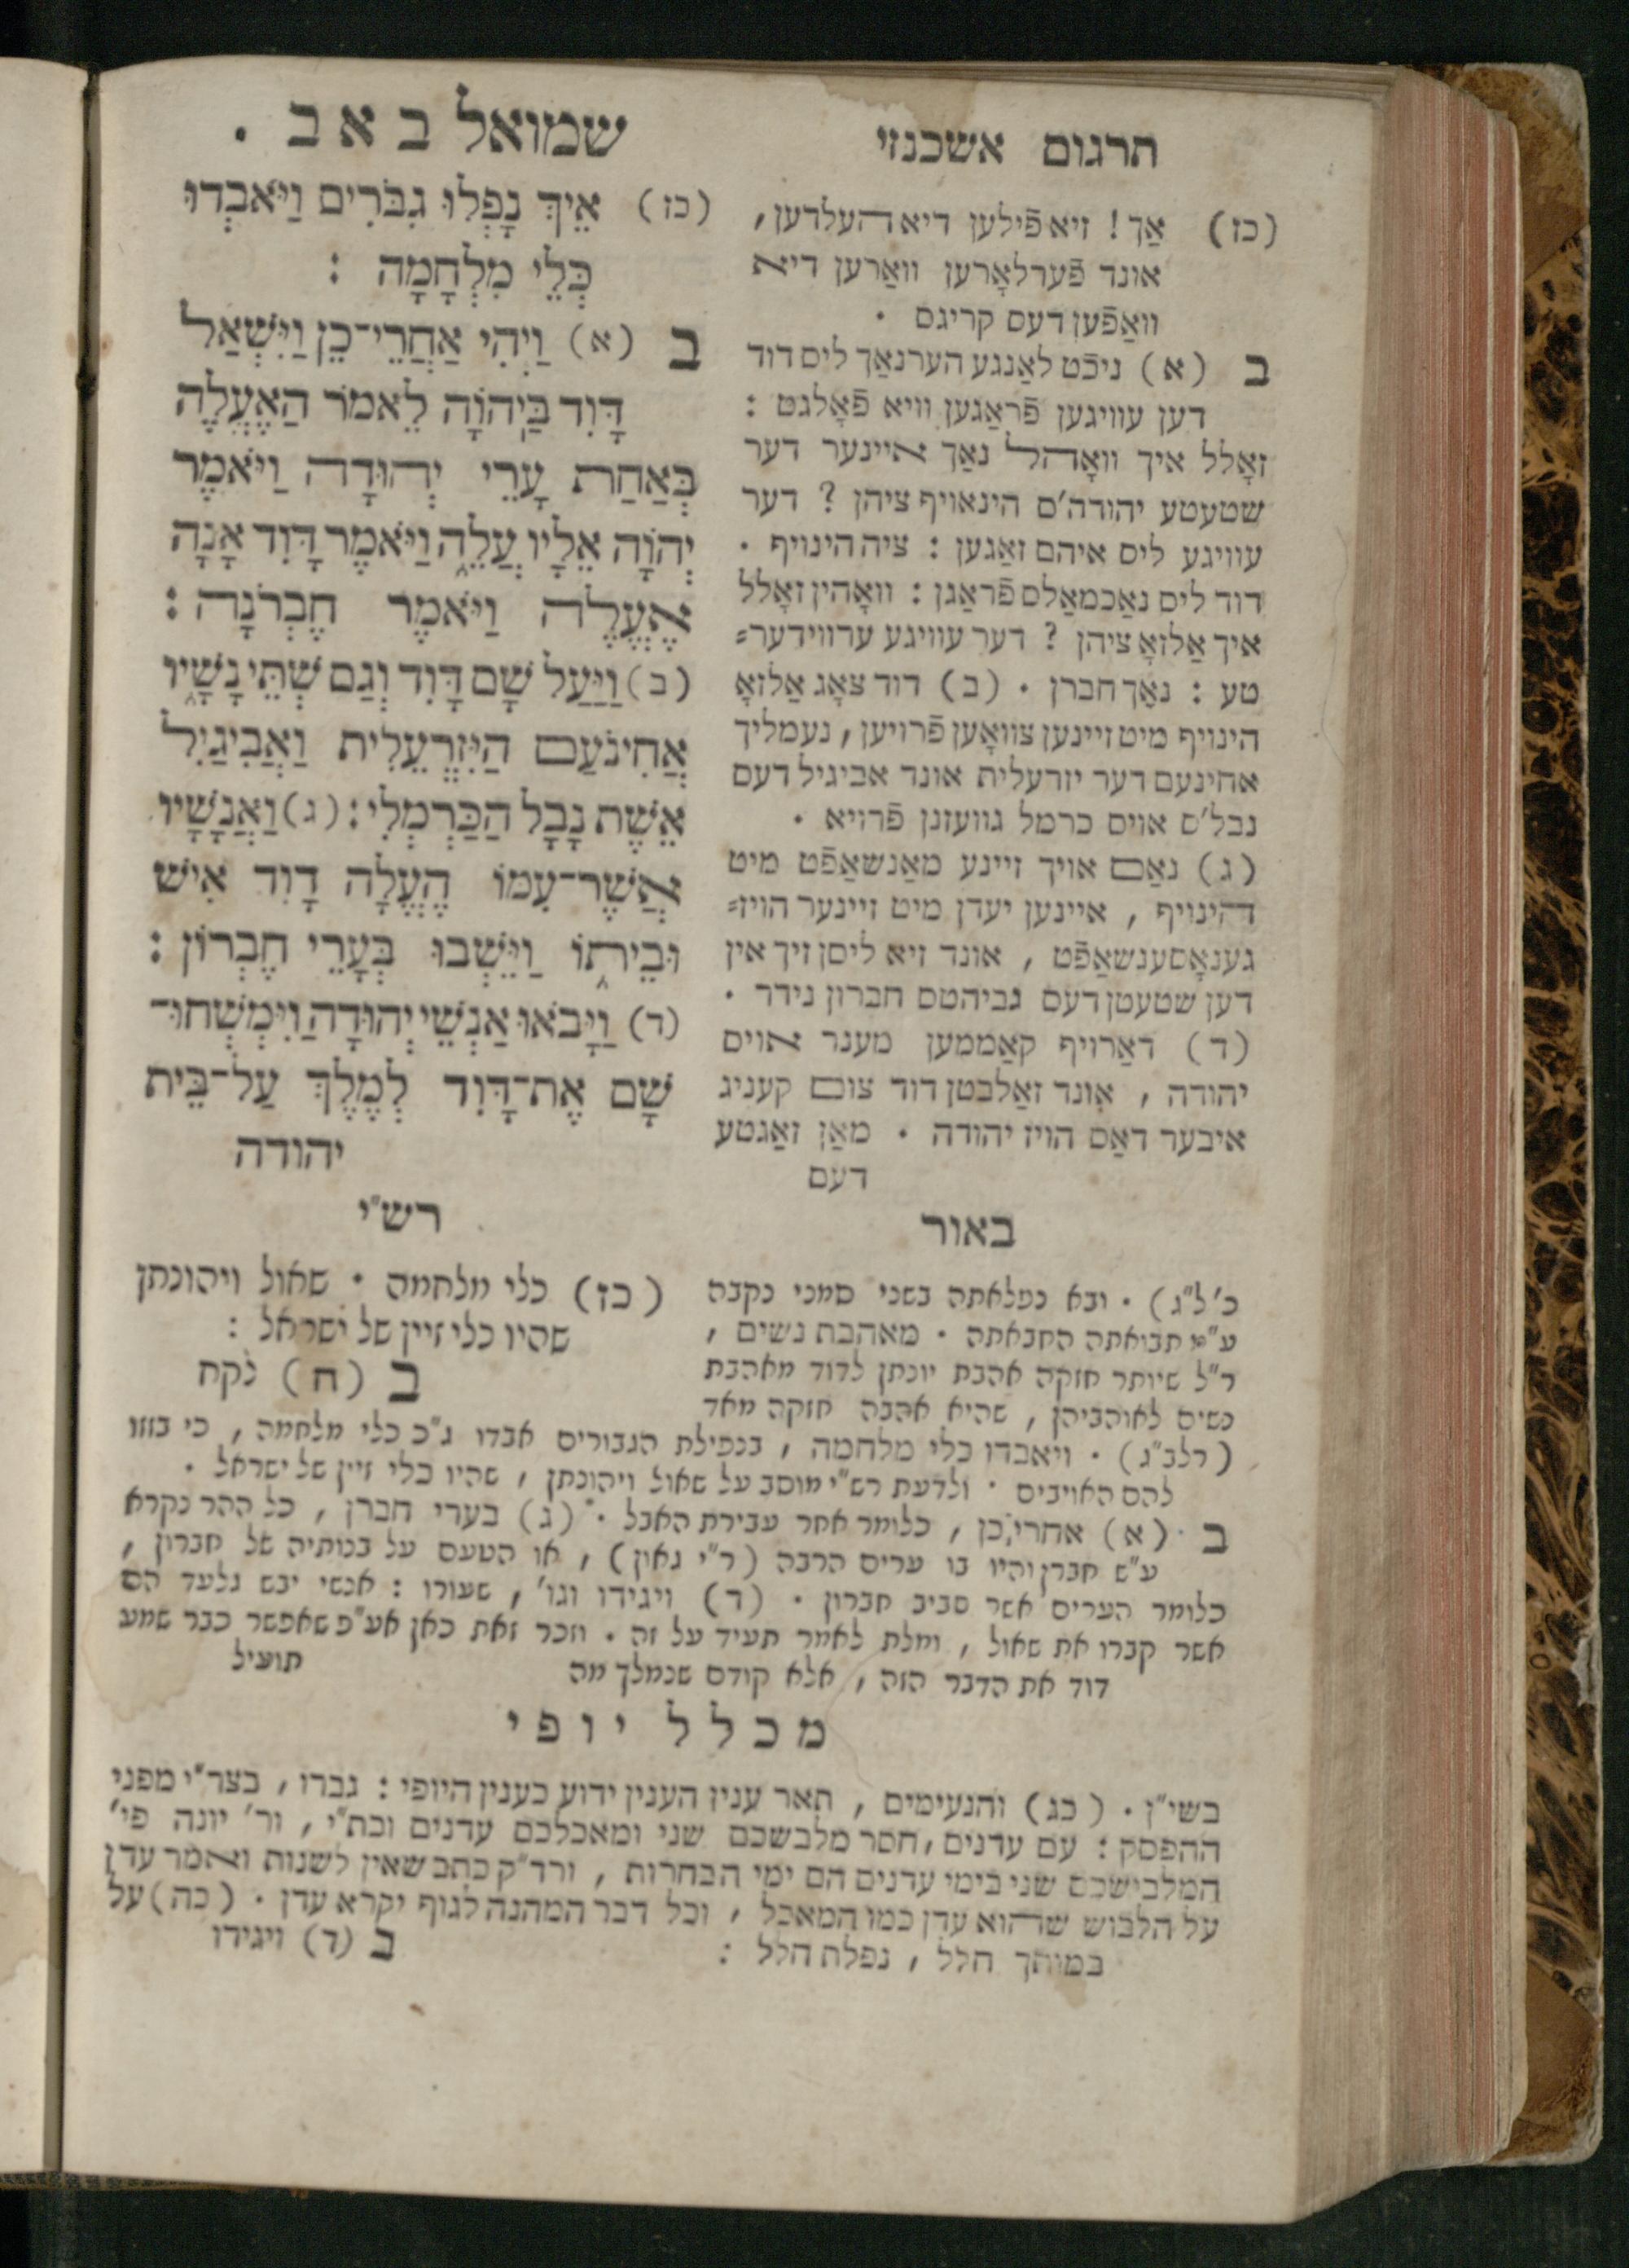 תרגום אשכנזי
(כז) אַך ! זיא פֿילען דיא העלדען ,
אונד פֿערלאָרען וואַרען דיא
וואַפֿען דעס קריגס .
ב (א) ניכֿט לאַנגע הערנאַך ליס דוד
דען עוויגען פֿראַגען וויא פֿאָלגט :
זאָלל איך וואָהל נאַך איינער דער
שטעטע יהודה'ס הינאויף ציהן ? דער
עוויגע ליס איהם זאַגען : ציה הינויף .
דוד ליס נאַכמאַלס פֿראַגן : וואָהין זאָלל
איך אַלזאָ ציהן ? דער עוויגע ערווידער=
טע : נאַך חברן . (ב) דוד צאָג אַלזאָ
הינויף מיט זיינען צוואָען פֿרויען , נעמליך
אחינעם דער יזרעלית אונד אביגיל דעס
נבל'ס אויס כרמל גוועזנן פֿרויא .
(ג) נאַם אויך זיינע מאַנשאַפֿט מיט
דהינויף , איינען יעדן מיט זיינער הויז=
גענאָסענשאַפֿט , אונד זיא ליסן זיך אין
דען שטעטן דעס גביהטס חברון נידר .
(ד) דאַרויף קאַממען מענר אויס
יהודה , אונד זאַלבטן דוד צום קעניג
איבער דאַס הויז יהודה . מאַן זאַגטע
דעם
שמואל ב א ב .
(כז) אֵיךְ נָפְלוּ גִבֹּרִים וַיֹּאבְדוּ
כְּלֵי מִלְחָמָה :
ב (א) וַיְהִי אַחֲרֵי־כֵן וַיִּשְׁאַל
דָּוִד בַּיהוָֹה לֵאמֹר הַאֶעֱלֶה
בְּאַחַת עָרֵי יְהוּדָה וַיֹּאמֶר
יְהוָֹה אֵלָיו עֲלֵה וַיֹּאמֶר דָּוִד אָנָה
אֶעֱלֶה וַיֹּאמֶר חֶבְרֹנָה :
(ב) וַיַּעַל שָׁם דָּוִד וְגַם שְׁתֵּי נָשָׁיו
אֲחִינֹעַם הַיִּזְרְעֵלִית וַאֲבִיגַיִל
אֵשֶׁת נָבָל הַכַּרְמְלִי : (ג) וַאֲנָשָׁיו
אֲשֶׁר־עִמּוֹ הֶעֱלָה דָוִד אִישׁ
וּבֵיתוֹ וַיֵּשְׁבוּ בְּעָרֵי חֶבְרוֹן :
(ד) וַיָּבֹאוּ אַנְשֵׁי יְהוּדָה וַיִּמְשְׁחוּ־
שָׁם אֶת־דָּוִד לְמֶלֶךְ עַל־בֵּית
יהודה
באור
כ'ל"ג) . ובא נפלאתה בשני סמני נקבה
ע"מ תבואתה החבאתה . מאהבת נשים ,
ר"ל שיותר חזקה אהבת יונתן לדוד מאהבת
נשים לאוהביהן , שהיא אהבה חזקה מאד
רש"י
(כז) כלי מלחמה . שאול ויהונתן
שהיו כלי זיין של ישראל :
ב (ח) לקח
(רלב"ג) . ויאבדו כלי מלחמה , בנפילת הגבורים אבדו ג"כ כלי מלחמה , כי בוזזו
להם האויבים . ולדעת רש"י מוסב על שאול ויהונתן , שהיו כלי זיין של ישראל .
ב (א) אחרי כן , כלומר אחר עבירת האבל . (ג) בערי חברן , כל ההר נקרא
ע"ש חברן והיו בו ערים הרבה (ר"י גאון) , או הטעם על בנותיה של חברון ,
כלומר הערים אשר סביב חברון . (ד) ויגידו וגו' , שעורו : אנשי יבש גלעד הם
אשר קברו את שאול , ומלת לאמר תעיד על זה . וזכר זאת כאן אע"פ שאפשר כבר שמע
דוד את הדבר הזה , אלא קודם שנמלך מה
תועיל
מכלל יופי
בשי"ן . (כג) והנעימים , תאר ענין הענין ידוע כענין היופי : גברו , בצר"י מפני
ההפסק : עם עדנים , חסר מלבשכם שני ומאכלכם עדנים וכת"י , ור' יונה פי'
המלבישכם שני בימי עדנים הם ימי הבחרות , ורד"ק כתב שאין לשנות ואמר עדן
על הלבוש שהוא עדן כמו המאכל , וכל דבר המהנה לגוף יקרא עדן . (כה) על
במותך חלל , נפלת חלל :
ב (ד) ויגידו